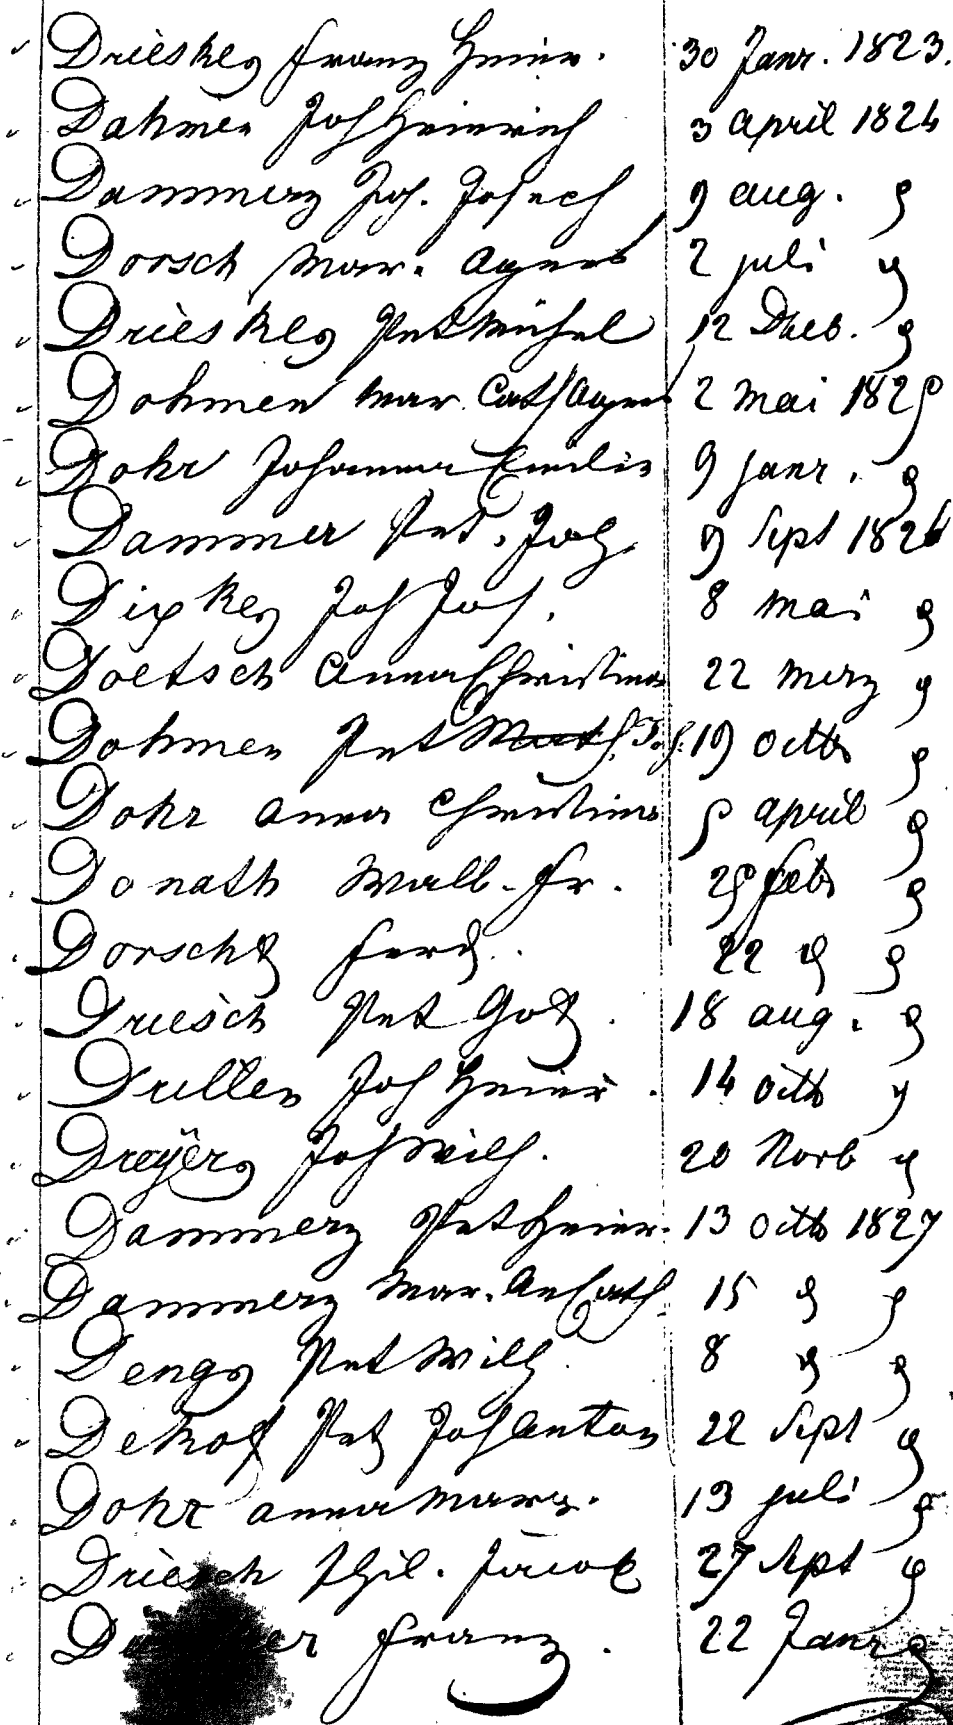 Drieskes Franz Heinr. 30 Janr. 1823.
Dahmen Joh Heinrich 3 april 1824
Dammerz Joh. Joseph 9 aug. "
Dorsch Mar. Agnes 2 juli "
Drieskes Pet Michel 12 Dbeb. "
Dohmen Mar. Cath Agnes 2 Mai 1825
Dohr Johanna Emilie 9 janr. "
Dammer Pet. Jos. 9 Sept 1826
Dixkes Joh Jos. 8 Mai "
Doetsch Anna Christina 22 Merz "
Dohmen Pet Math. Jos. 19 octb "
Dohr Anna Christina 5 april "
Donath Wall. Fr. 25 feb "
Dorscht Ferd. 22 " "
Driesch Pet Got. 18 aug. "
Drillen Joh Heinr. 14 octb "
Dreÿers Joh Wilh. 20 Norb "
Dammerz Pet Heinr. 13 octb 1827
Dammerz Mar. An Cath. 15 " "
Dengs Pet Wilh. 8 " "
Dekof Pet Joh Anton 22 Sept "
Dohr Anna Marg. 13 juli "
Driesch Phil. Jacob 27 Sept "
Franz. 22 Janr "